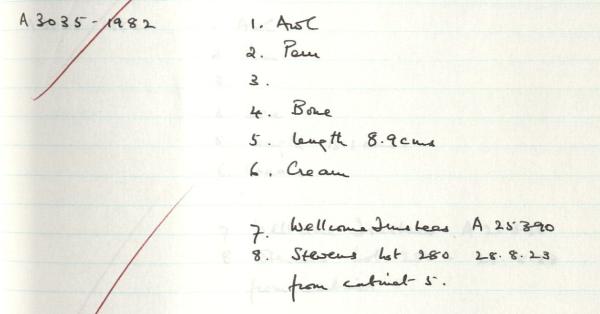 A 3035-1982
1. Awl
2. Peru
3.
4. Bone
5. length 8.9cms
6. Cream
7. Wellcome Trustees A 25390
8. Stevens lot 280 28.8.23
from cabinet 5.